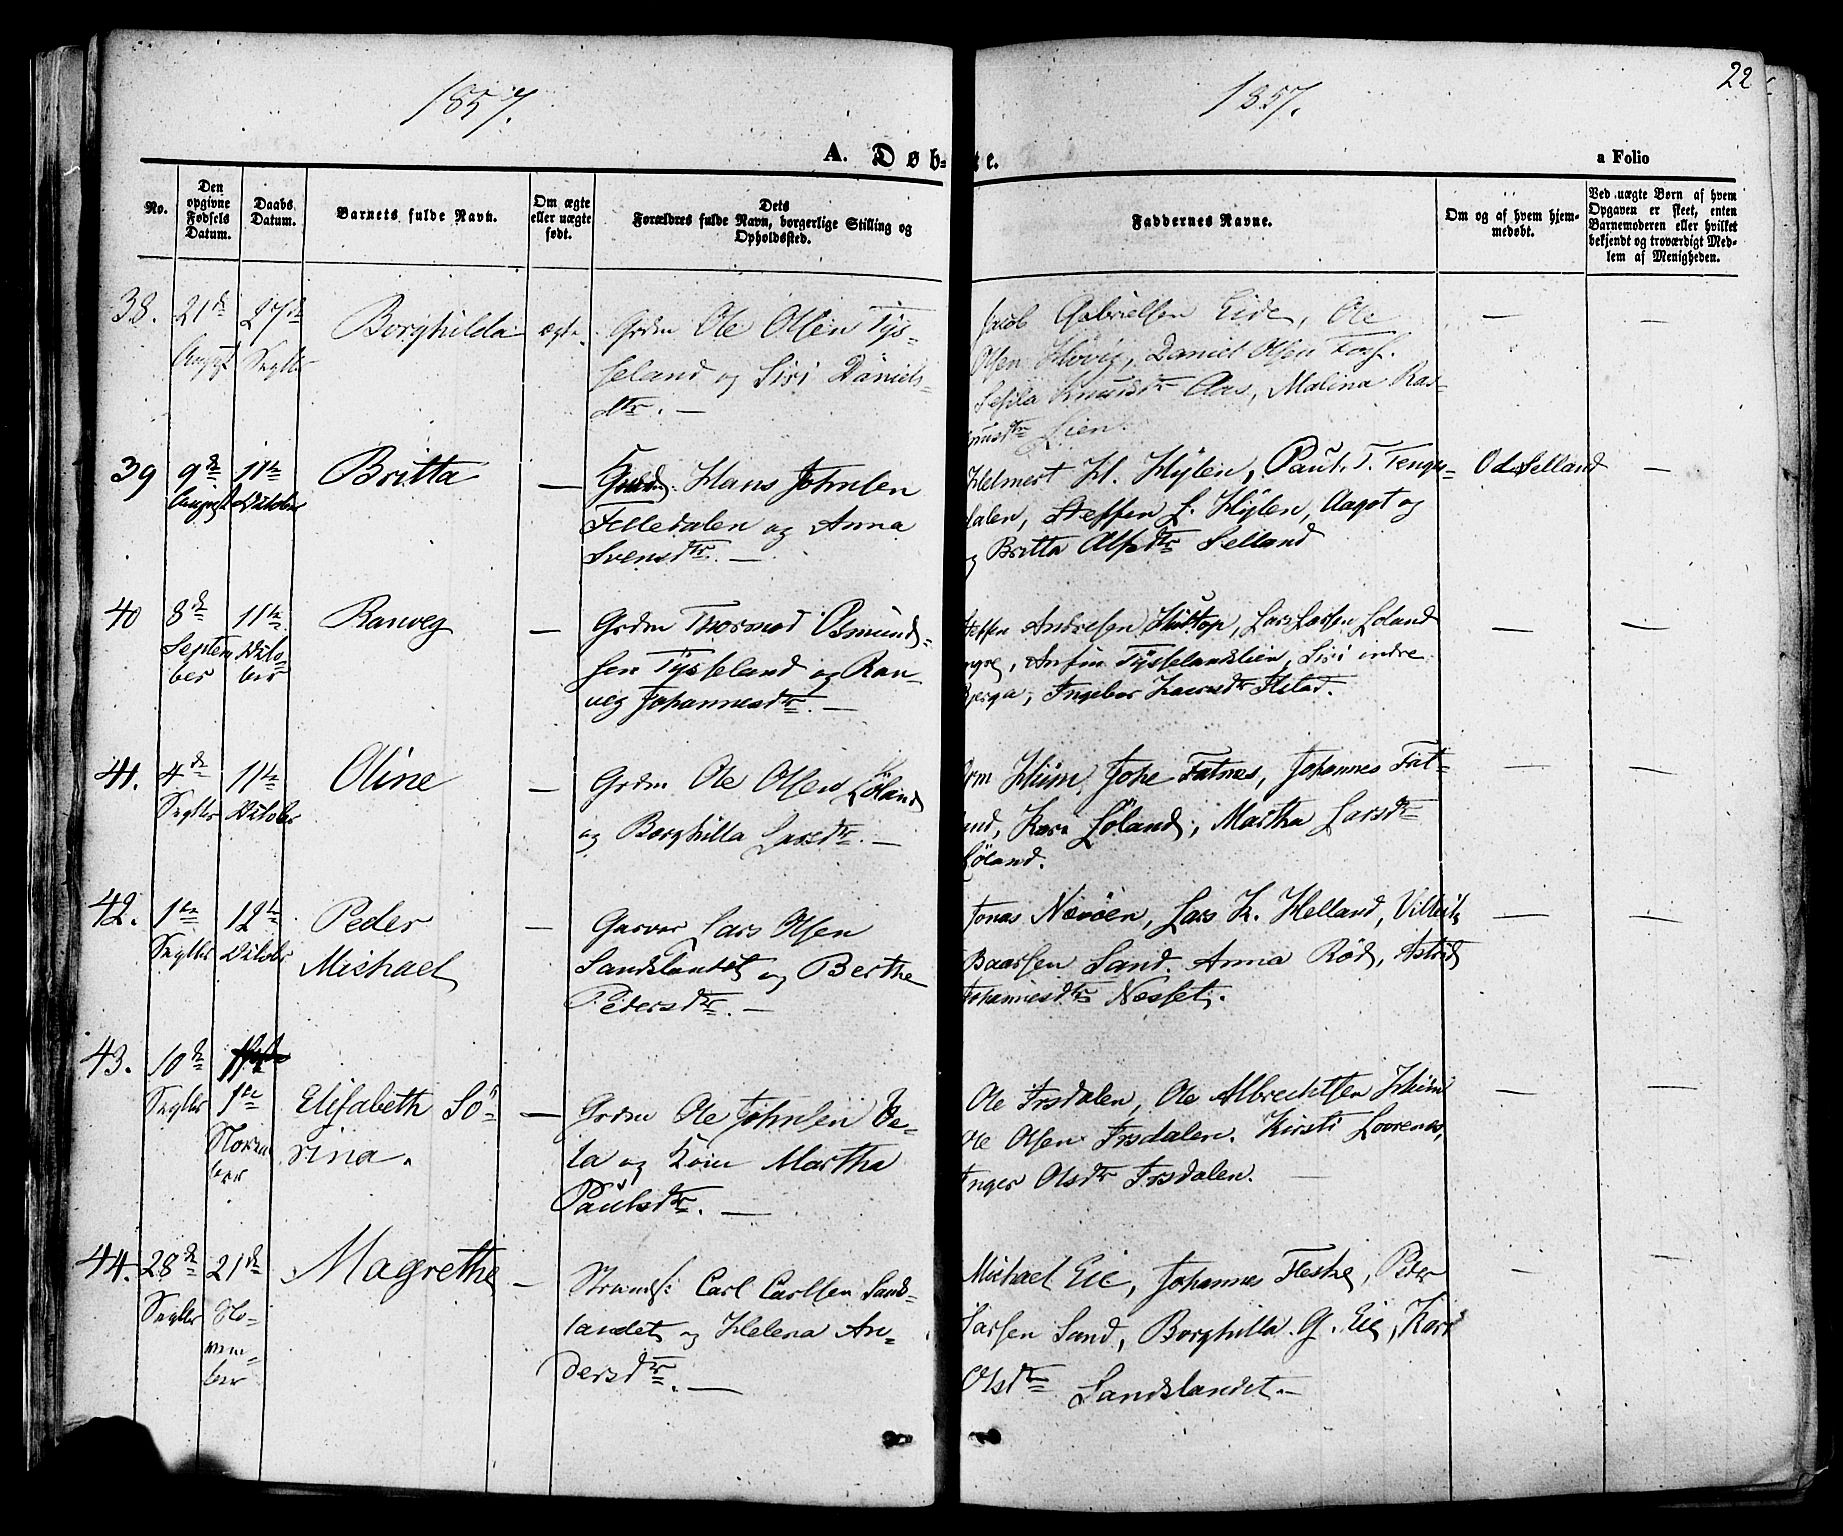 1857.
1857.
22
A. Døb-
te.
a Folio
No.
Den
opgivne
Fødsels
Datum.
Daabs
Datum.
Barnets fulde Navn.
Om ægte
eller uægte
født.
Dets
Forældres fulde Navn, borgerlige Stilling og
Opholdssted.
Faddernes Navne.
Om og af hvem hjem-
medøbt.
Ved uægte Børn af hvem
Opgaven er skeet, enten
Barnemoderen eller hvilket
bekjendt og troværdigt Med-
lem af Menigheden.
38.
21de
August
27de
Septbr
Borghilda
ægte.
Grdm Ole Olsen Tys-
seland og Siri Daniels-
dtr. —
Jacob Gabrielsen Eide, Ole
Olsen Høvig, Daniel Olsen Foss.
Sesila Knudsdtr Aas, Malina Ras-
musdtr Lien.
—
—
39
9de
August
11te
Oktober
Britta
—
Hans Johnsen
Felledalen og Anna
Svensdtr. —
Helmert H. Hylen, Paul T. Tengs-
dalen, Steffen L. Hylen, Aagot og
og Britta Olsdtr Selland
O d Selland
—
40
8de
Septem
ber
11te
Okto-
ber
Ranveg
—
Grdm Thormod Osmund-
sen Tysseland og Ran-
veg Johannesdtr. —
Steffen Andresen Hustop, Lars Larsen Loland
yngre, Anfin Tysselandslien, Siri indre
Bjerga, Ingebor Knudsdtr Ilstad.
—
—
41.
4de
Septbr
11te
Oktober
Oline
—
Grdm Ole Olsen Løland
og Borghilla Larsdtr. —
Orm Hiim, Johe Fatnes, Johannes Fat-
land, Kari Løland, Martha Larsdtr
Løland.
—
—
42.
1ste
Septbr
12te
Oktober
Peder
Michael
—
Garver Lars Olsen
Sandslandet og Berthe
Pedersdtr. —
Jonas Nævøen, Lars K. Helland,
Baarsen Sand. Anna Rød, Astrid
Johannesdtr Nesset.
—
—
43.
10de
Septbr
1ste
Novem
ber
Elisabeth Sø-
rina.
—
Grdm Ole Johnsen Ve-
la og Kone Martha
Paulsdtr. —
Ole Irsdalen, Ole Albrechtsen Hiim
Ole Olsen Irsdalen. Kirsti
Inger Olsdtr Irsdalen. —
—
—
44.
28de
Septbr
21de
No-
vem-
ber
Magrethe
—
Strands: Carl Carlsen Sand-
landet og Helena An-
dersdtr. —
Michael Eie, Johannes Fleske, Peder
Larsen Sand, Borghilla G. Eie, Kari
Olsdtr Sandslandet. —
—
—